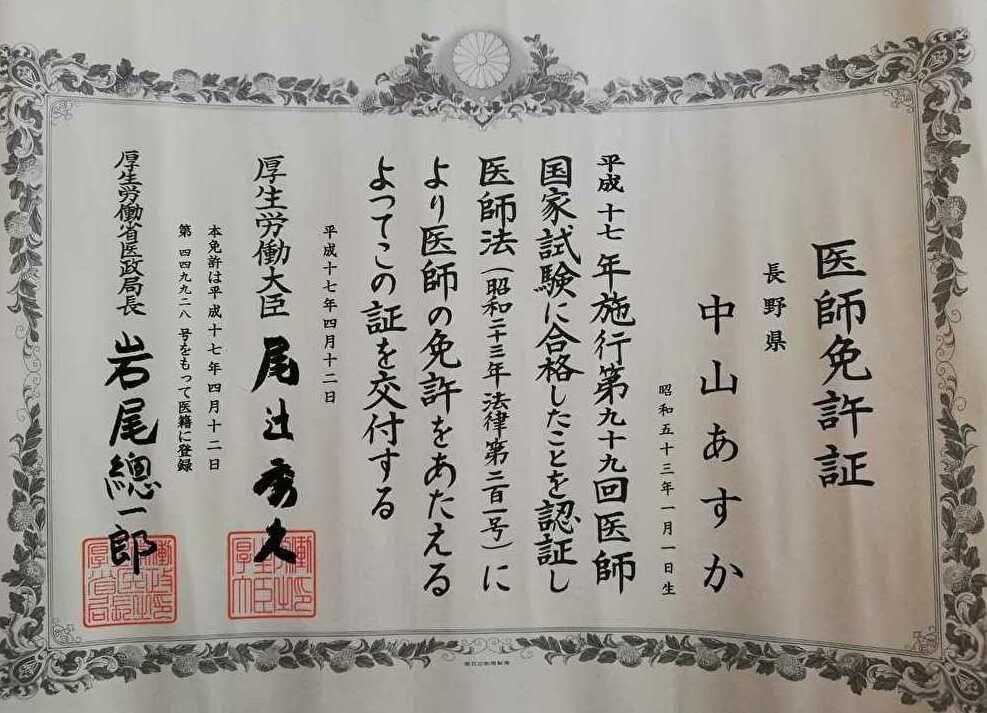 医師免許証
長野県
中山あすか
昭和五十三年一月一日生
平成十七年施行第九十九回医師
国家試験に合格したことを認証し
医師法(昭和二十三年法律第二百一号)に
より医師の免許をあたえる
よってこの証を交付する
平成十七年四月十二日
厚生労働大臣 尾辻秀久
本免許は平成十七年四月十二日
第四四九九二八号をもって医籍に登録
厚生労働省医政局長 岩尾總一郎